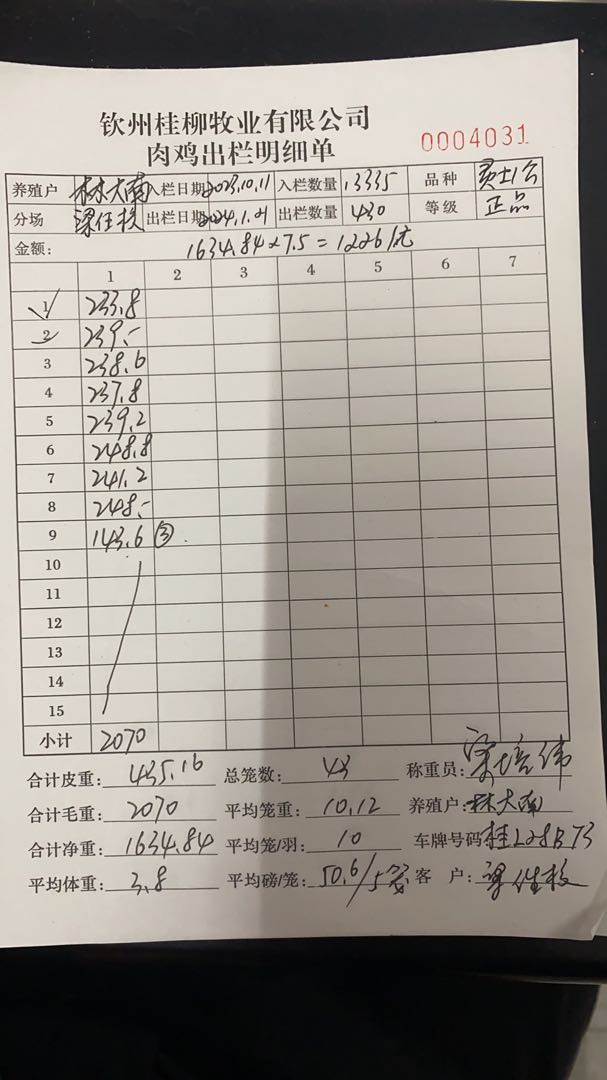 钦州桂柳牧业有限公司
肉鸡出栏明细单
0004031
养殖户 林大南 入栏日期 2023.10.11 入栏数量 13335 品种
分场 出栏日期 2024.1.21 出栏数量 430 等级 正品
金额: 1634.84×7.5=12261元
1 2 3 4 5 6 7
1 233.8
2 239.-
3 238.6
4 237.8
5 239.2
6 248.8
7 241.2
8 248.-
9 143.6 ③
10
11
12
13
14
15
小计 2070
合计皮重: 435.16 总笼数: 43 称重员: 梁培伟
合计毛重: 2070 平均笼重: 10.12 养殖户: 林大南
合计净重: 1634.84 平均笼/羽: 10 车牌号码: 桂L28B73
平均体重: 3.8 平均磅/笼: 50.6/5笼 客 户: